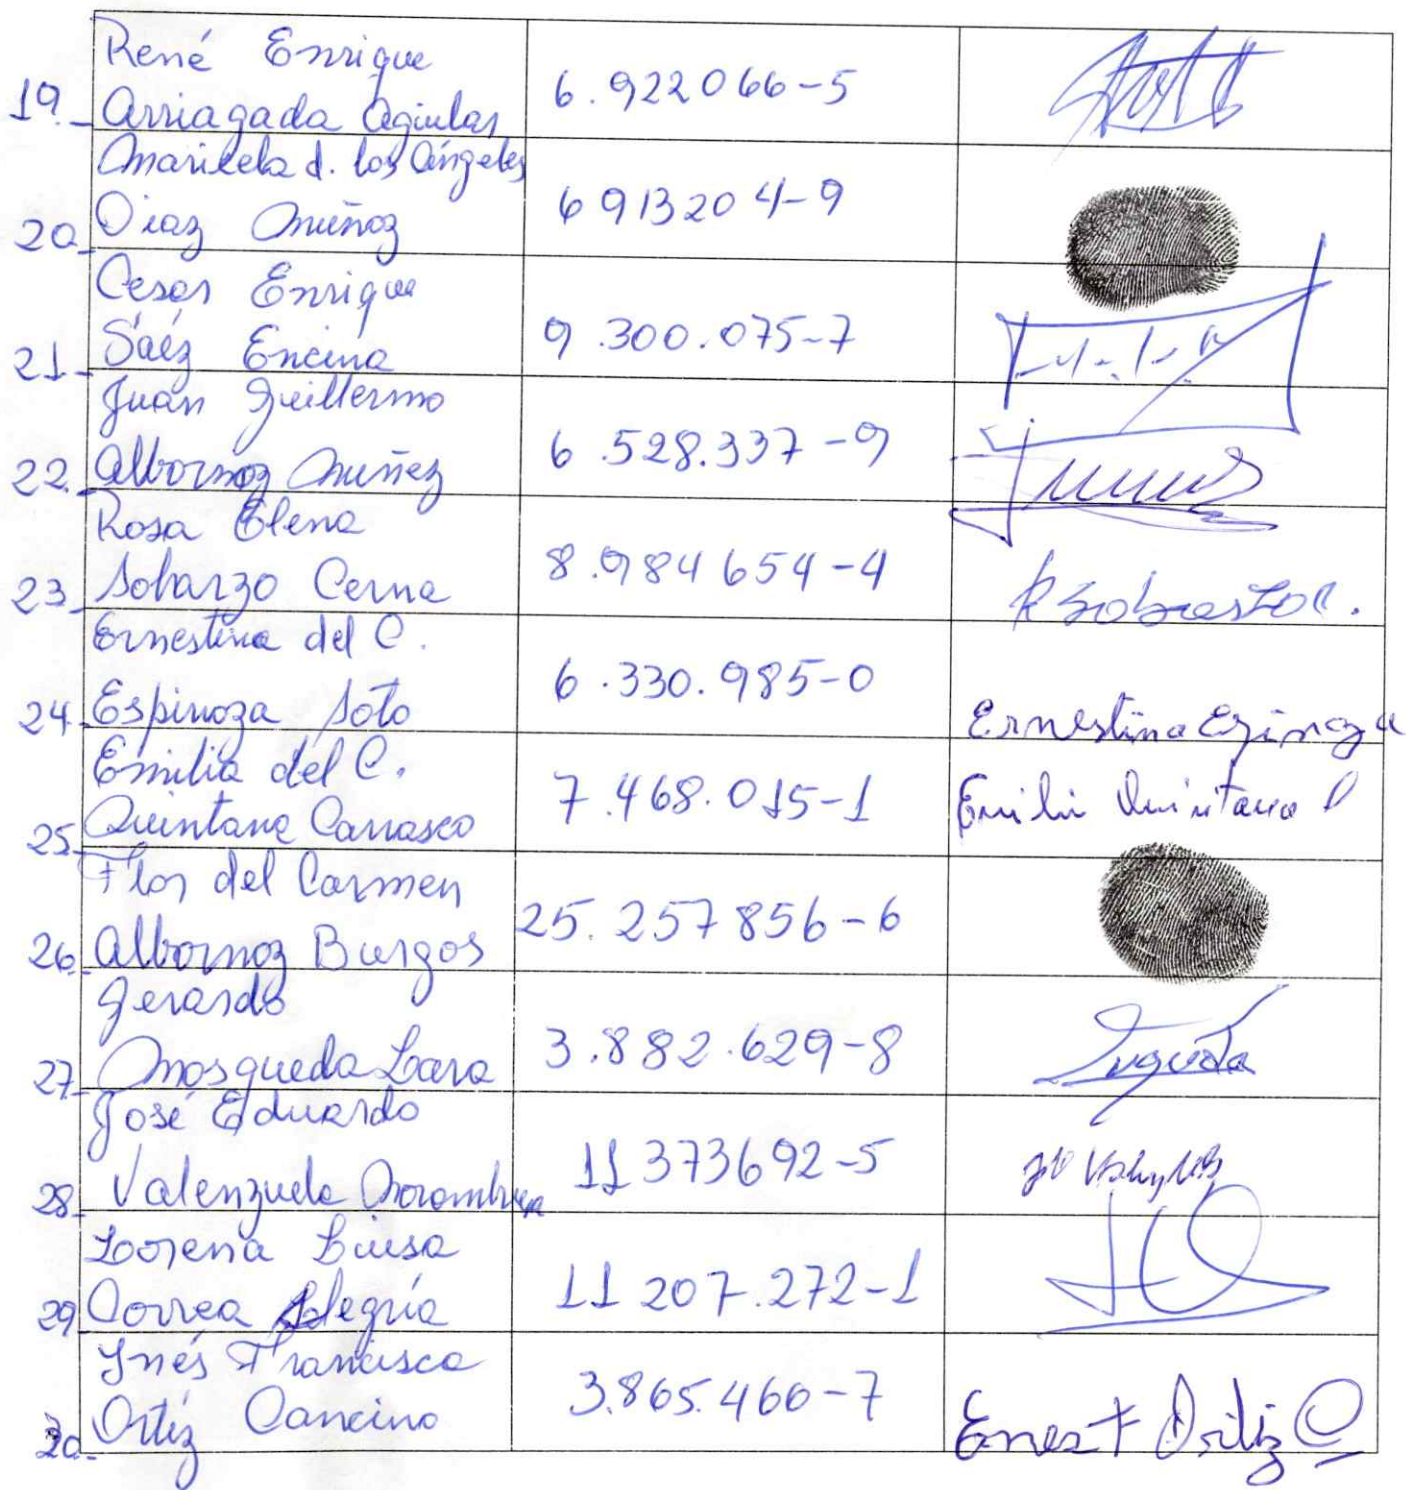 René Enrique
19.- Arriagada Aguilar 6.922066-5
Maricela d. los Ángeles
20.- Diaz Muñoz 6913204-9
Cesar Enrique
21.- Sáez Encina 9.300.075-7
Juan Guillermo
22.- Albornoz Nuñez 6.528.337-9
Rosa Elena
23.- Sobarzo Cerna 8.984654-4
Ernestina del C.
24.- Espinoza Soto 6.330.985-0 Ernestina
Emilia del C.
25.- Quintana Carrasco 7.468.015-1 Emilia Quintana
Flor del Carmen
26.- Albornoz Burgos 25.257856-6
Gerardo
27.- Mosqueda Lara 3.882.629-8
José Eduardo
28.- Valenzuela 11373692-5
Lorena Luisa
29.- Correa Alegría 11207.272-1
Inés Francisca
30.- Ortíz Cancino 3.865.466-7 Ortiz C